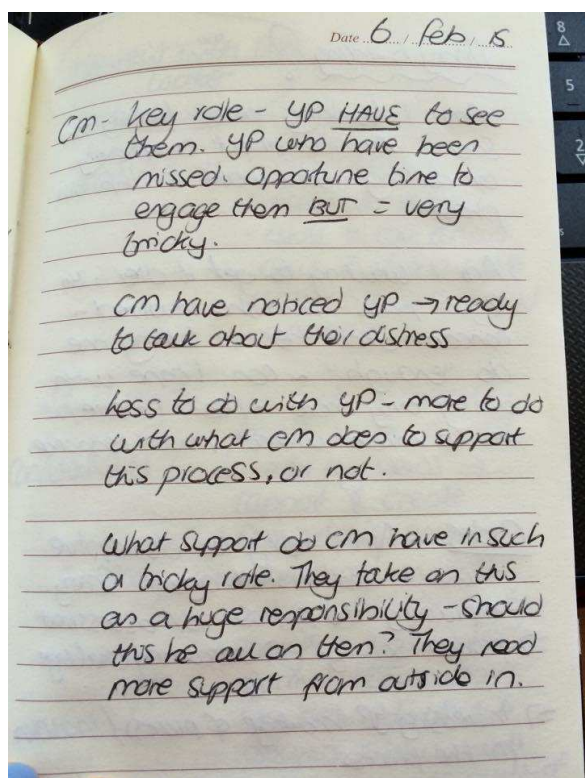 Date 6 / feb / 15
CM - key role - YP HAVE to see
them. YP who have been
missed. Opportune time to
engage them BUT = very
tricky.
CM have noticed YP → ready
to talk about their distress
Less to do with YP - more to do
with what CM does to support
this process, or not.
What support do CM have in such
a tricky role. They take on this
as a huge responsibility - should
this be all on them? They need
more support from outside in.
8
5
2